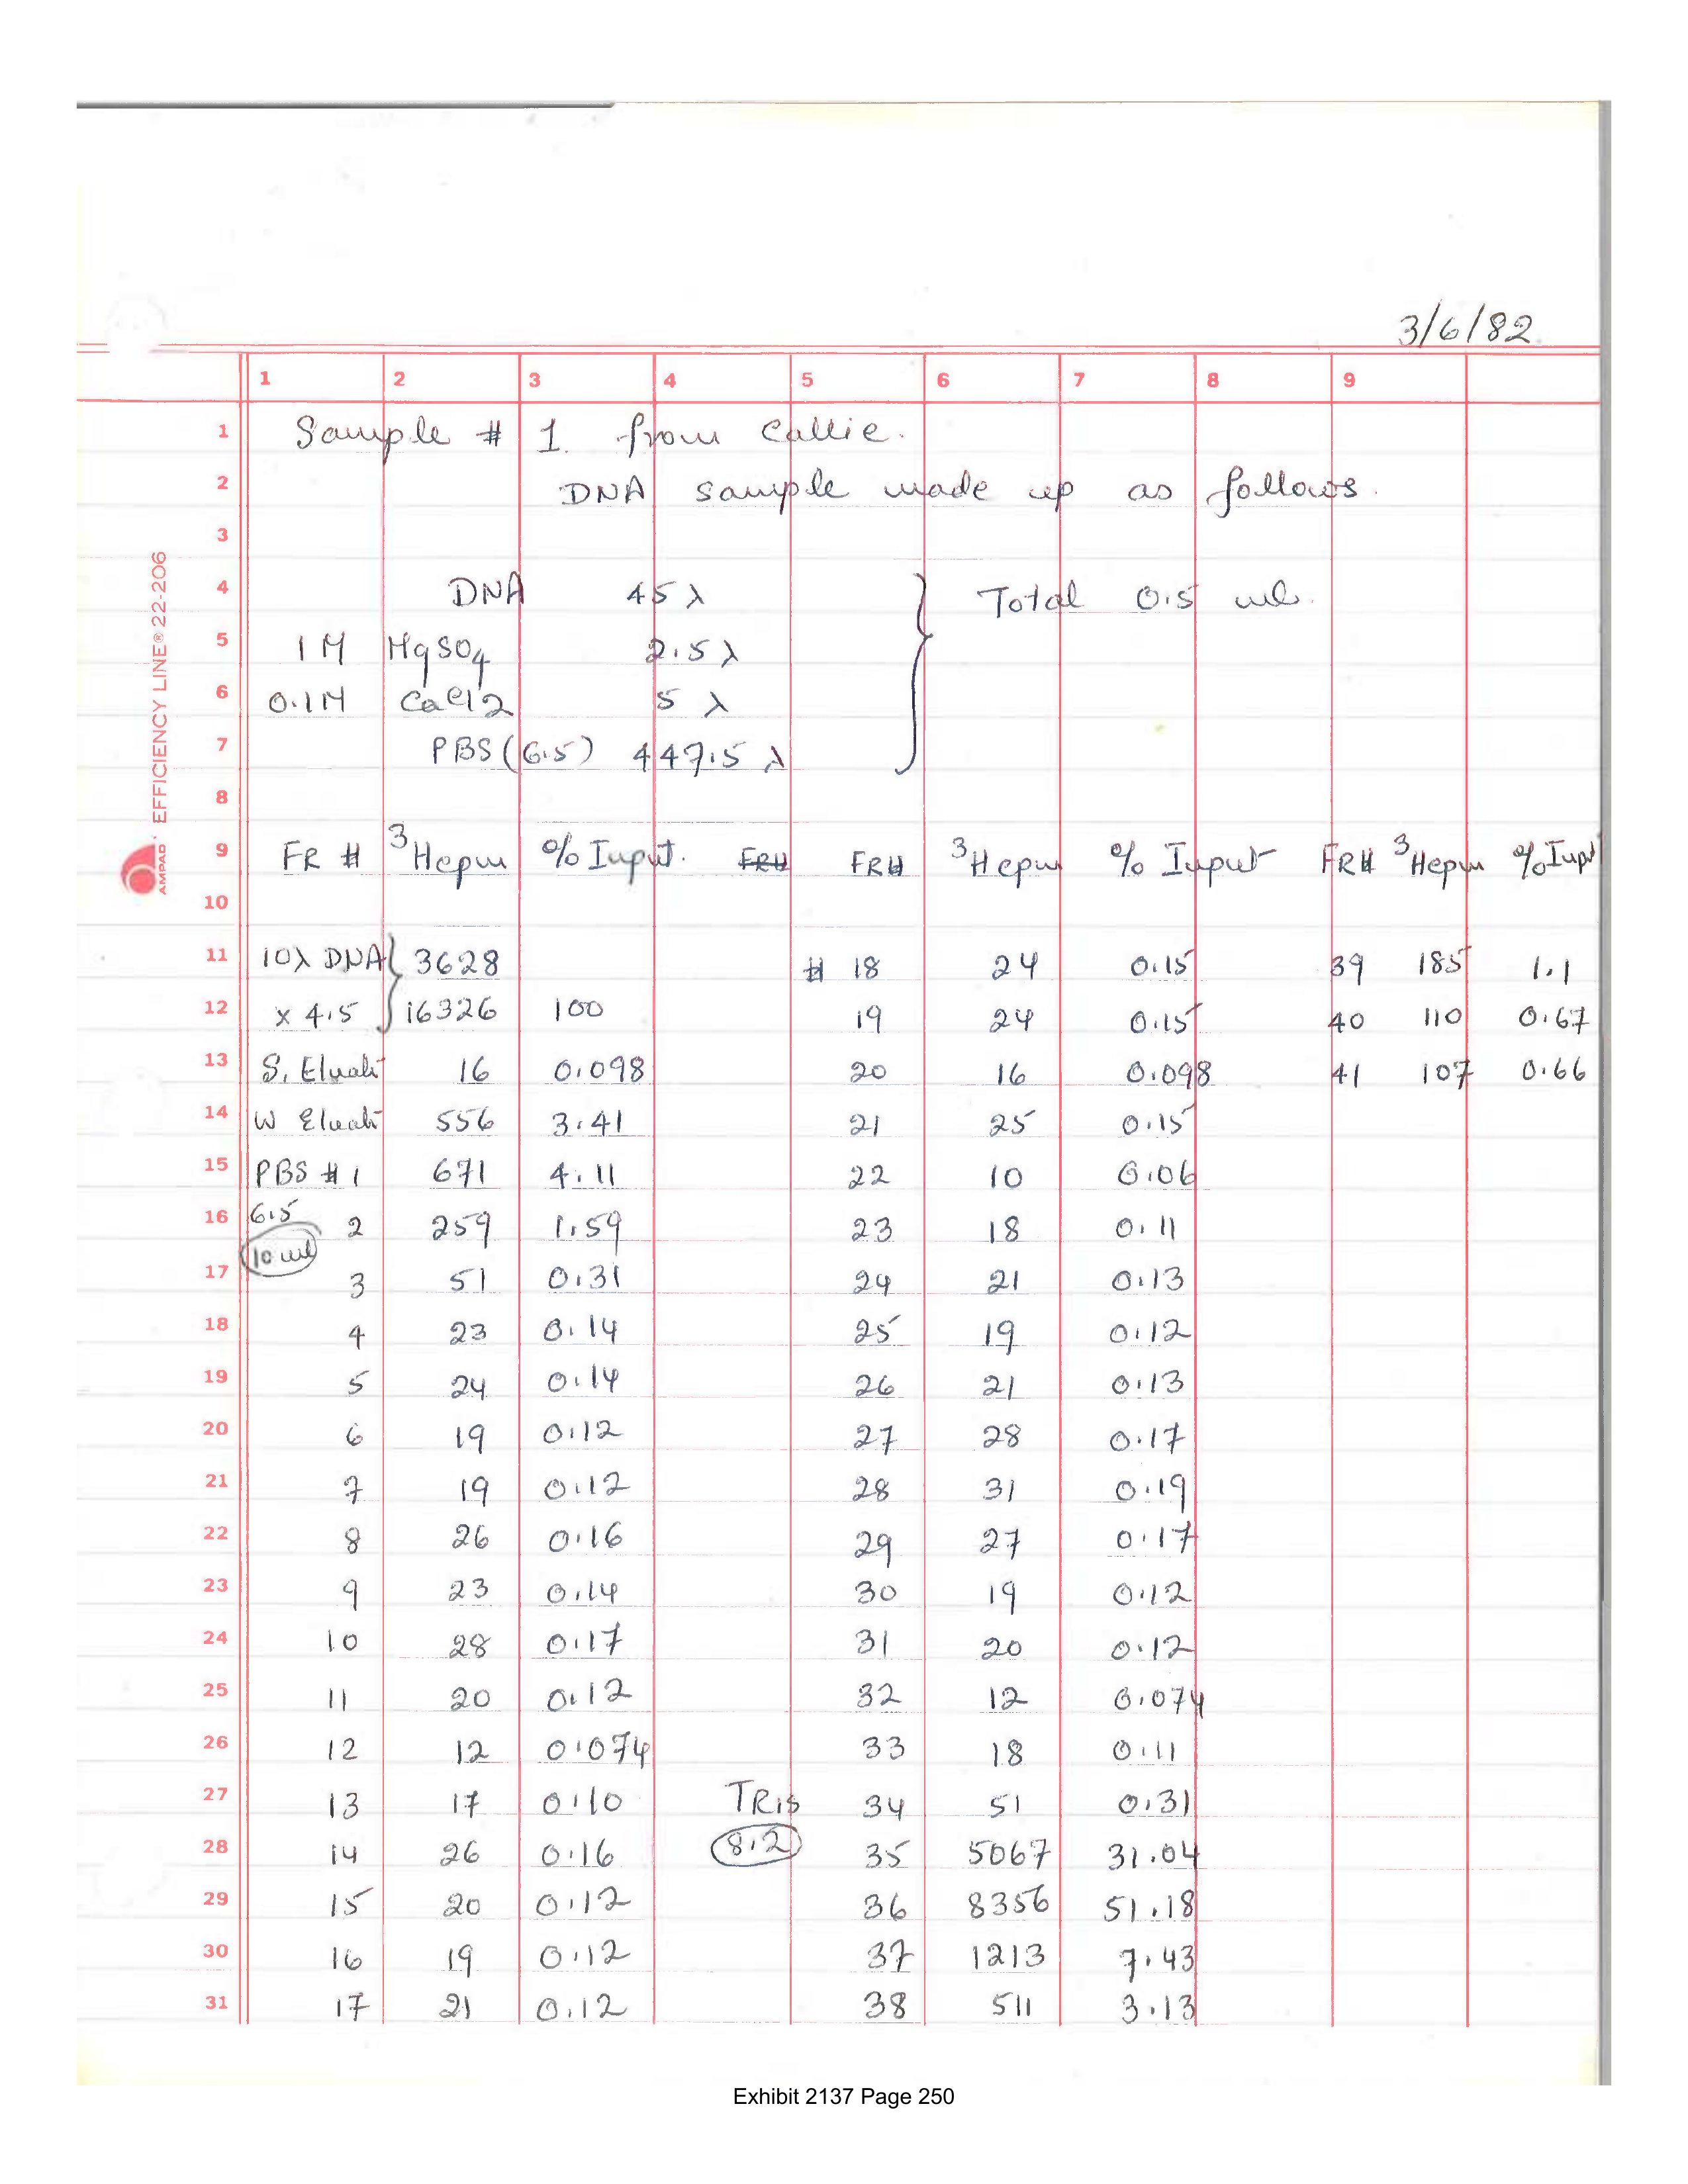 3/6/82
1 2 3 4 5 6 7 8 9
1 Sample # 1 from Callie.
2 DNA sample made up as follows.
3
4 DNA 45 λ Total 0.5 ml.
5 1 M MgSO4 2.5 λ
6 0.1M CaCl2 5 λ
7 PBS (6.5) 447.5 λ
8
9 FR # 3Hcpm % Input. FR# FR# 3Hcpm % Input FR# 3Hcpm % Inpt
10
11 10λ DNA 3628 # 18 24 0.15 39 185 1.1
12 x 4.5 16326 100 19 24 0.15 40 110 0.67
13 S. Eluati 16 0.098 20 16 0.098 41 107 0.66
14 W Eluati 556 3.41 21 25 0.15
15 PBS # 1 671 4.11 22 10 0.06
16 6.5 2 259 1.59 23 18 0.11
10 ml
17 3 51 0.31 24 21 0.13
18 4 23 0.14 25 19 0.12
19 5 24 0.14 26 21 0.13
20 6 19 0.12 27 28 0.17
21 7 19 0.12 28 31 0.19
22 8 26 0.16 29 27 0.17
23 9 23 0.14 30 19 0.12
24 10 28 0.17 31 20 0.12
25 11 20 0.12 32 12 0.074
26 12 12 0.074 33 18 0.11
27 13 17 0.10 TRis 34 51 0.31
28 14 26 0.16 8.2 35 5067 31.04
29 15 20 0.12 36 8356 51.18
30 16 19 0.12 37 1213 7.43
31 17 21 0.12 38 511 3.13
AMPAD EFFICIENCY LINE® 22-206
Exhibit 2137 Page 250